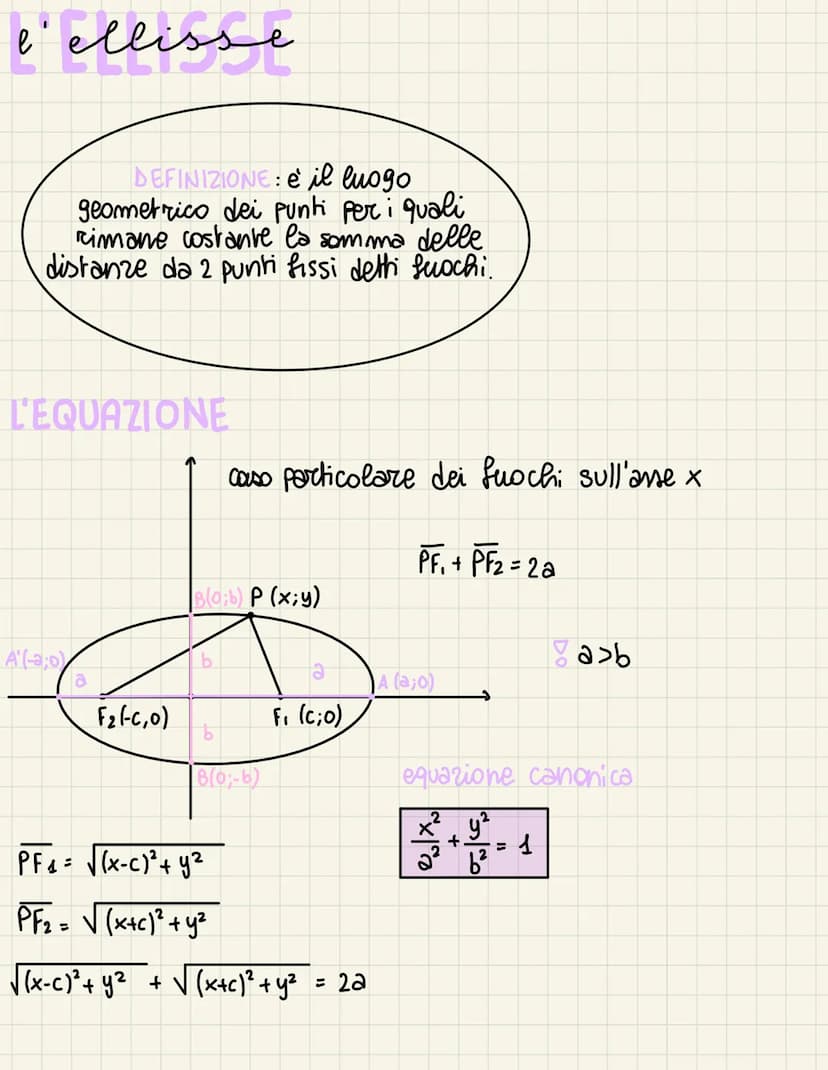 L'ELLISSE
l'ellisse
DEFINIZIONE: è il luogo
geometrico dei punti per i quali
rimane costante la somma delle
distanze da 2 punti fissi detti fuochi.
L'EQUAZIONE
caso particolare dei fuochi sull'asse x
PF₁ + PF₂ = 2a
B(0;b) P (x;y)
! a>b
A'(-a;0)
b
a
a
A (a;0)
F₂(-c,0)
F₁ (c;0)
b
B(0;-b)
equazione canonica
x²/a² + y²/b² = 1
PF₁ = √(x-c)²+ y²
PF₂ = √(x+c)² + y²
√(x-c)²+ y² + √(x+c)² + y² = 2a